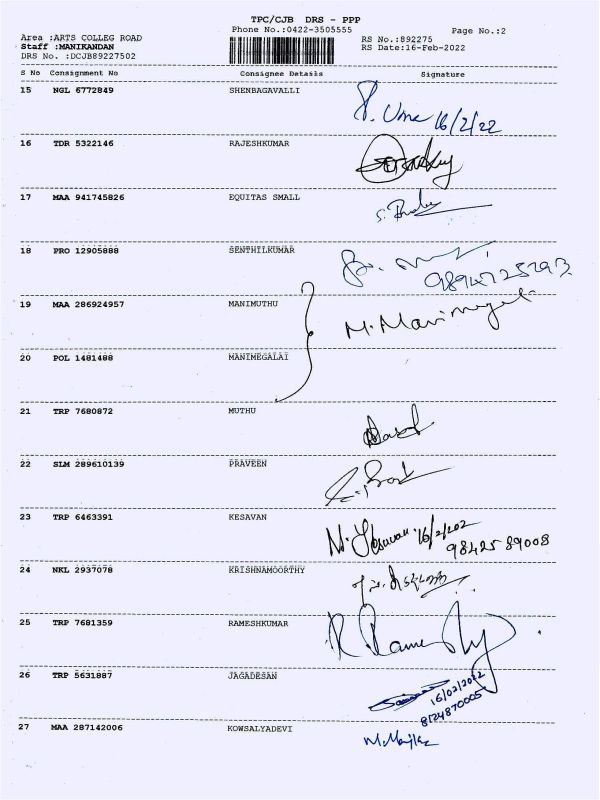 TPC/CJB DRS - PPP
Phone No.:0422-3505555
Page No.:2
Area :ARTS COLLEG ROAD
RS No.:892275
Staff :MANIKANDAN
RS Date:16-Feb-2022
DRS No. :DCJB89227502
S No Consignment No Consignee Details Signature
15 NGL 6772849 SHENBAGAVALLI
16/2/22
16 TDR 5322146 RAJESHKUMAR
17 MAA 941745826 EQUITAS SMALL
18 PRO 12905888 SENTHILKUMAR
9894725293
19 MAA 286924957 MANIMUTHU
20 POL 1481488 MANIMEGALAI
21 TRP 7680872 MUTHU
22 SLM 289610139 PRAVEEN
23 TRP 6463391 KESAVAN
98425 89008
24 NKL 2937078 KRISHNAMOORTHY
25 TRP 7681359 RAMESHKUMAR
26 TRP 5631887 JAGADESAN
16/02/2022
8124870005
27 MAA 287142006 KOWSALYADEVI